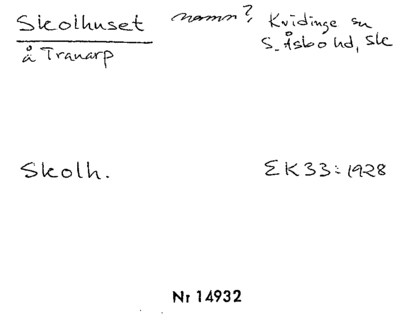 Skolhuset namn? Kvidinge sn
å Tranarp S. Åsbo hd, Sk
Skolh. EK33:1928
Nr 14932